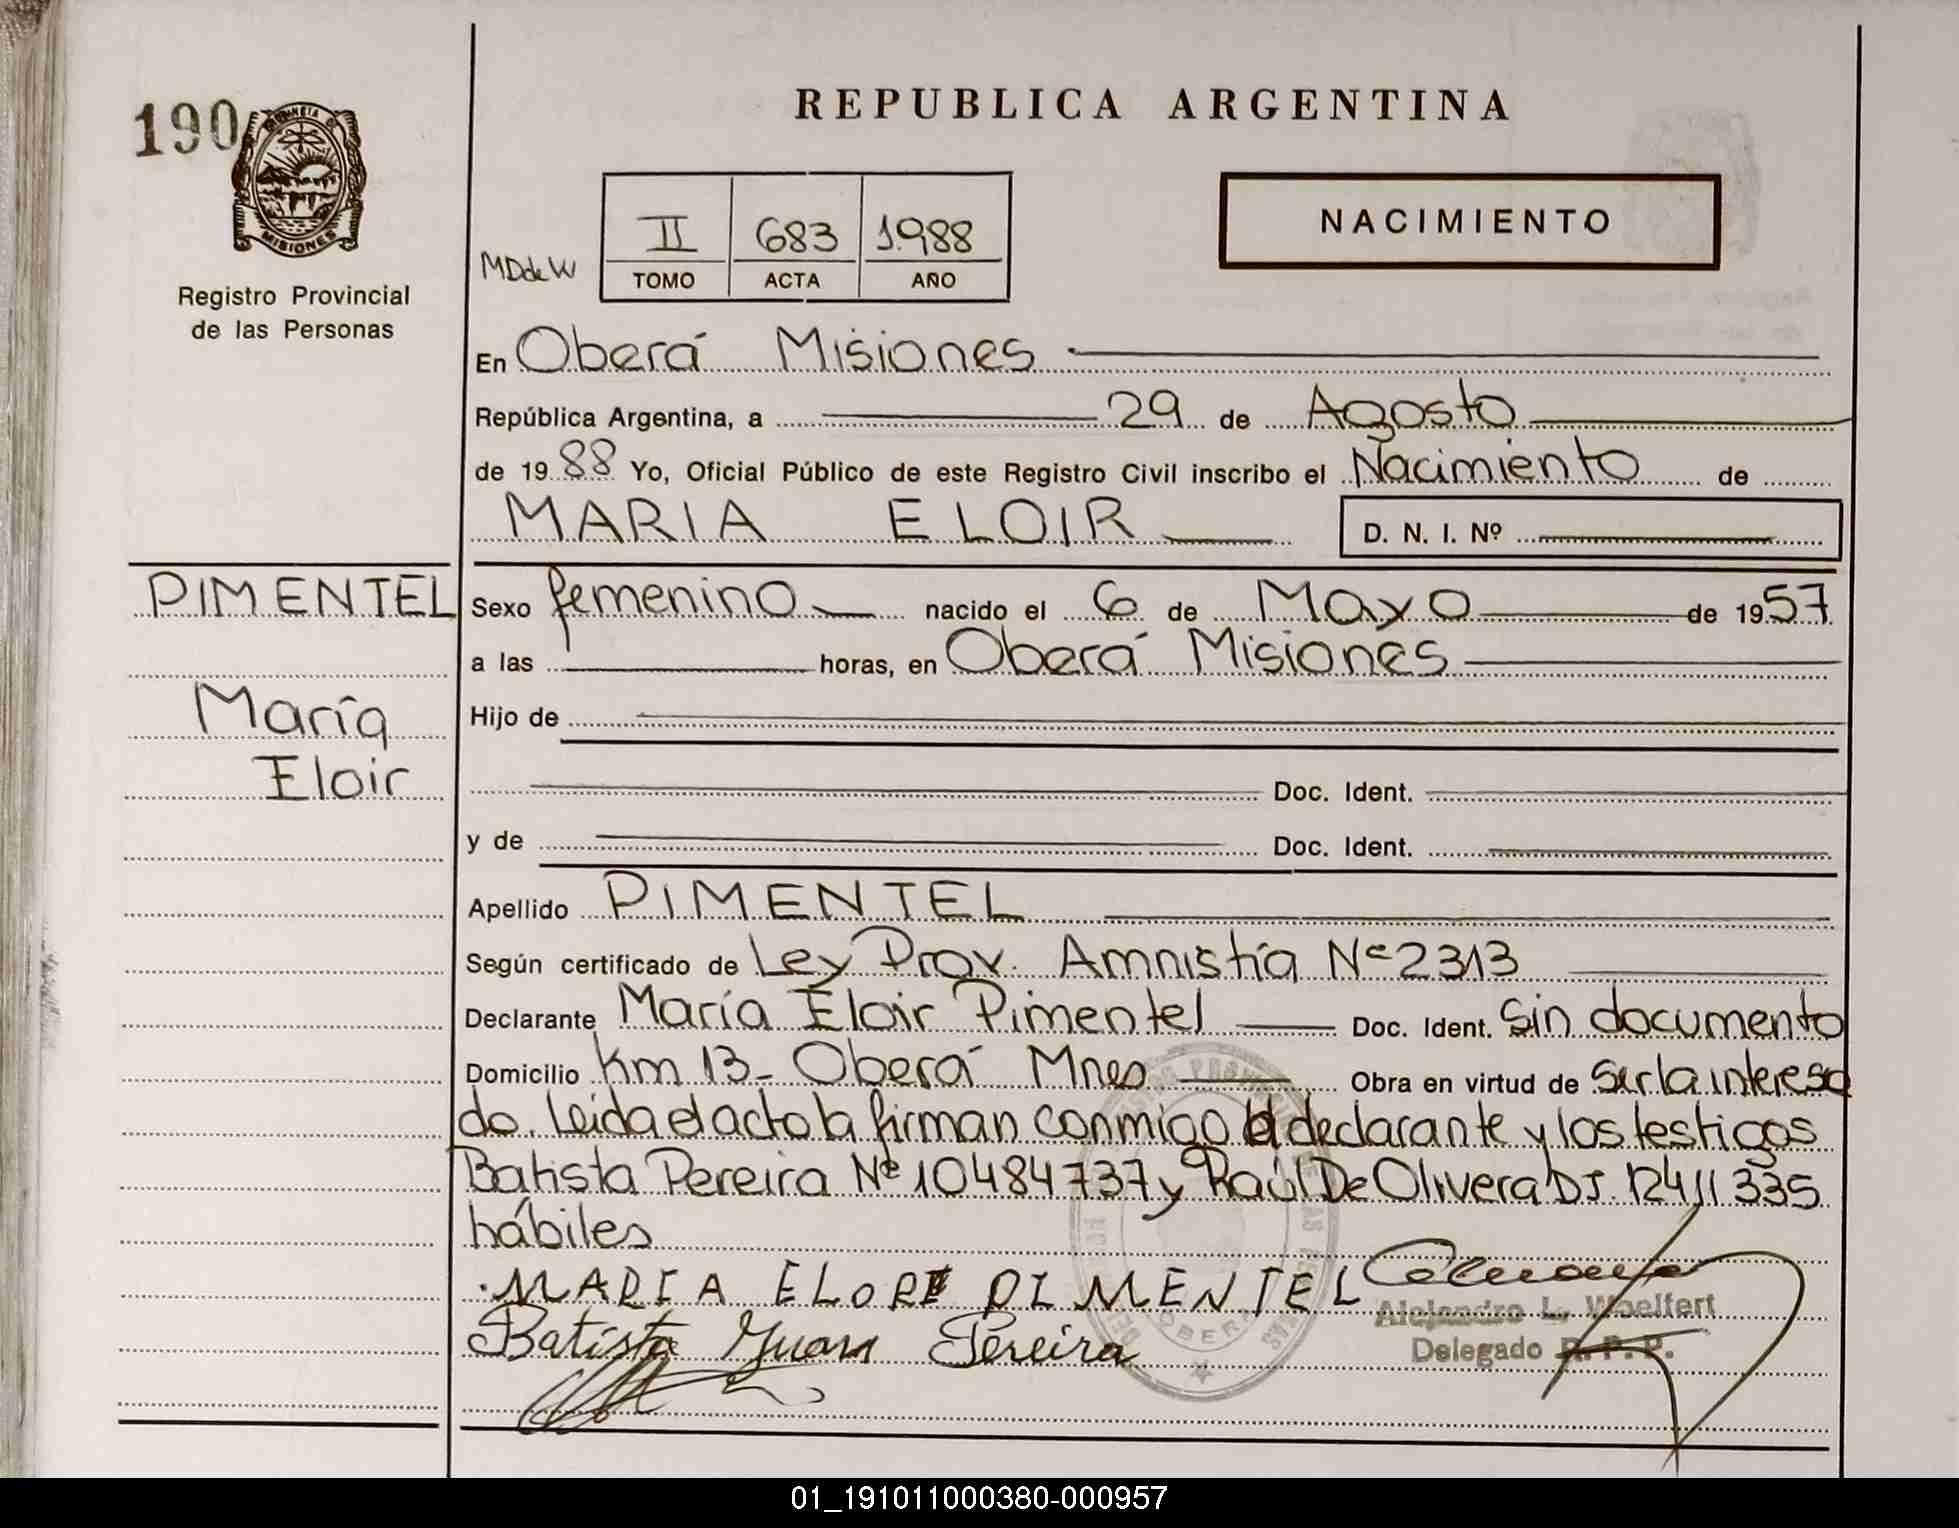 REPUBLICA ARGENTINA
190
MISIONES
Registro Provincial
de las Personas
MDdeW
II 683 1.988
TOMO ACTA AÑO
NACIMIENTO
En Oberá Misiones
República Argentina, a 29 de Agosto
de 19 88 Yo, Oficial Público de este Registro Civil inscribo el Nacimiento de
MARIA ELOIR D. N. I. Nº
PIMENTEL
María
Eloir
Sexo femenino nacido el 6 de Mayo de 19 57
a las horas, en Oberá Misiones
Hijo de
Doc. Ident.
y de Doc. Ident.
Apellido PIMENTEL
Según certificado de Ley Prov. Amnistía Nº 2313
Declarante María Eloir Pimentel Doc. Ident. Sin documento
Domicilio Km 13 - Oberá Mnes Obra en virtud de Ser la interesa
do. Leida el acto la firman conmigo el declarante y los testigos
Batista Pereira Nº 10484737 y Raúl De Olivera DJ. 12411335
hábiles
MARIA ELORI PIMENTEL
Alejandro L. Woelfert
Batista Yuan Pereira
Delegado R. P. P.
OBERA
01_191011000380-000957